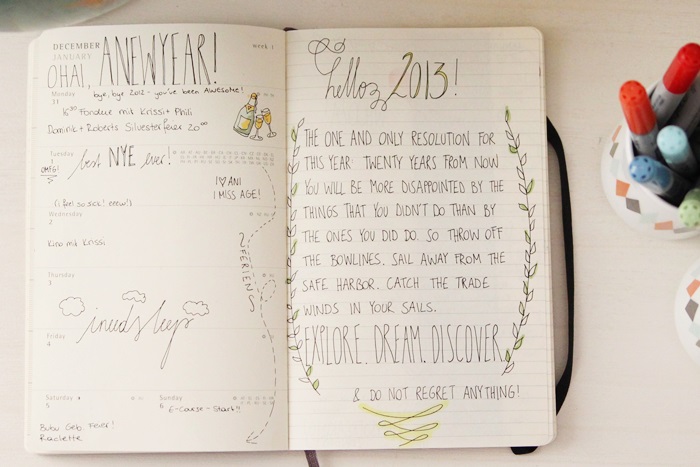 DECEMBER
JANUARY
week 1
OHAI, A NEW YEAR!
Monday
31
bye, bye 2012 - you've been AWESOME!
16:30 Fondue mit Krissi + Phili
Dominik + Roberts Silvesterfeier 20:00
Tuesday
1
OMFG!
best NYE ever!
I ♡ ANI
I MISS AGE!
(i feel so sick! eww!)
Wednesday
2
Kino mit Krissi
FERIEN
Thursday
3
i need sleep
Friday
4
Saturday
5
Sunday
6
E-Course-Start!!
Bubu Geb. Feier!
Raclette
hello 2013!
THE ONE AND ONLY RESOLUTION FOR
THIS YEAR: TWENTY YEARS FROM NOW
YOU WILL BE MORE DISAPPOINTED BY THE
THINGS THAT YOU DIDN'T DO THAN BY
THE ONES YOU DID DO. SO THROW OFF
THE BOWLINES. SAIL AWAY FROM THE
SAFE HARBOR. CATCH THE TRADE
WINDS IN YOUR SAILS.
EXPLORE. DREAM. DISCOVER.
& DO NOT REGRET ANYTHING!